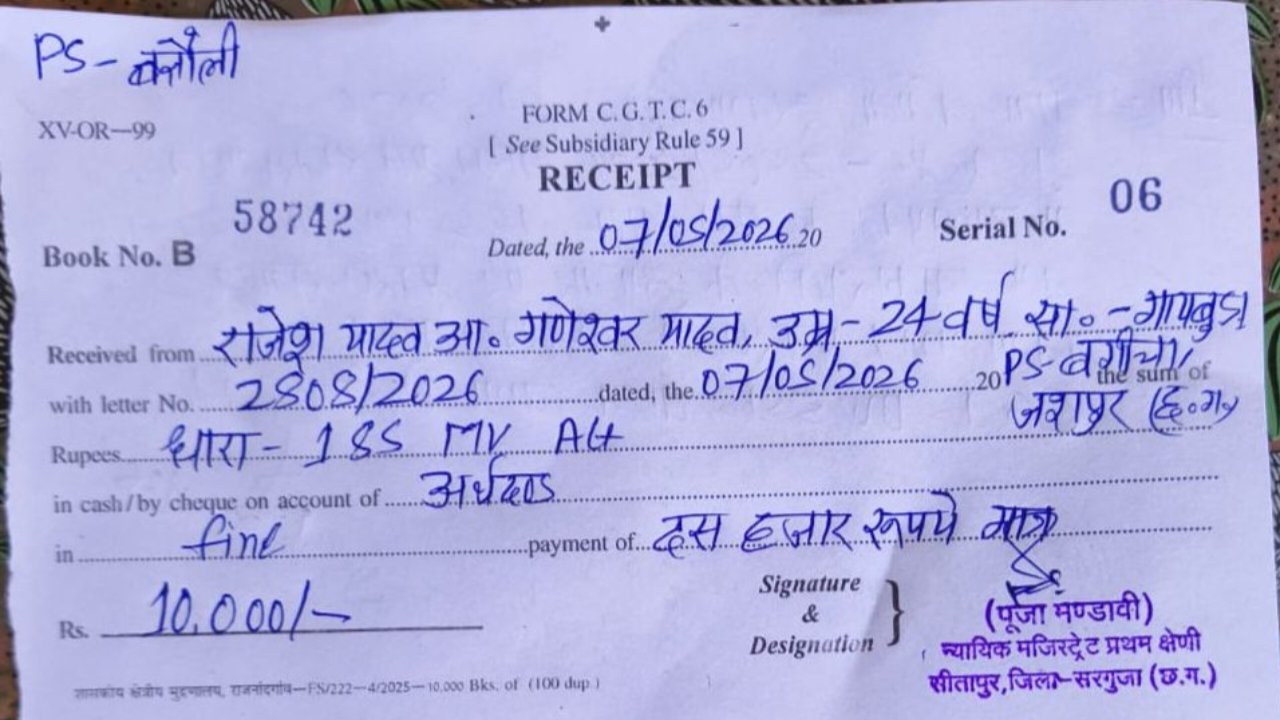 PS- बतौली
XV-OR—99
FORM C. G. T. C. 6
[ See Subsidiary Rule 59 ]
RECEIPT
Book No. B 58742 Dated, the 07/05/2026 20 Serial No. 06
Received from राजेश यादव आ० गणेश्वर यादव, उम्र- 24 वर्ष सा०-गायबुड़ा
with letter No. 2808/2026 dated, the 07/05/2026 20 PS-बगीचा, the sum of
जशपुर (छ०ग०)
Rupees धारा- 185 MV Act
in cash/by cheque on account of अर्थदण्ड
in fine payment of दस हजार रूपये मात्र
Rs. 10,000/-
Signature
&
Designation
(पूजा मण्डावी)
न्यायिक मजिस्ट्रेट प्रथम श्रेणी
सीतापुर, जिला-सरगुजा (छ.ग.)
शासकीय क्षेत्रीय मुद्रणालय, राजनांदगांव—FS/222—4/2025—10,000 Bks. of (100 dup.)